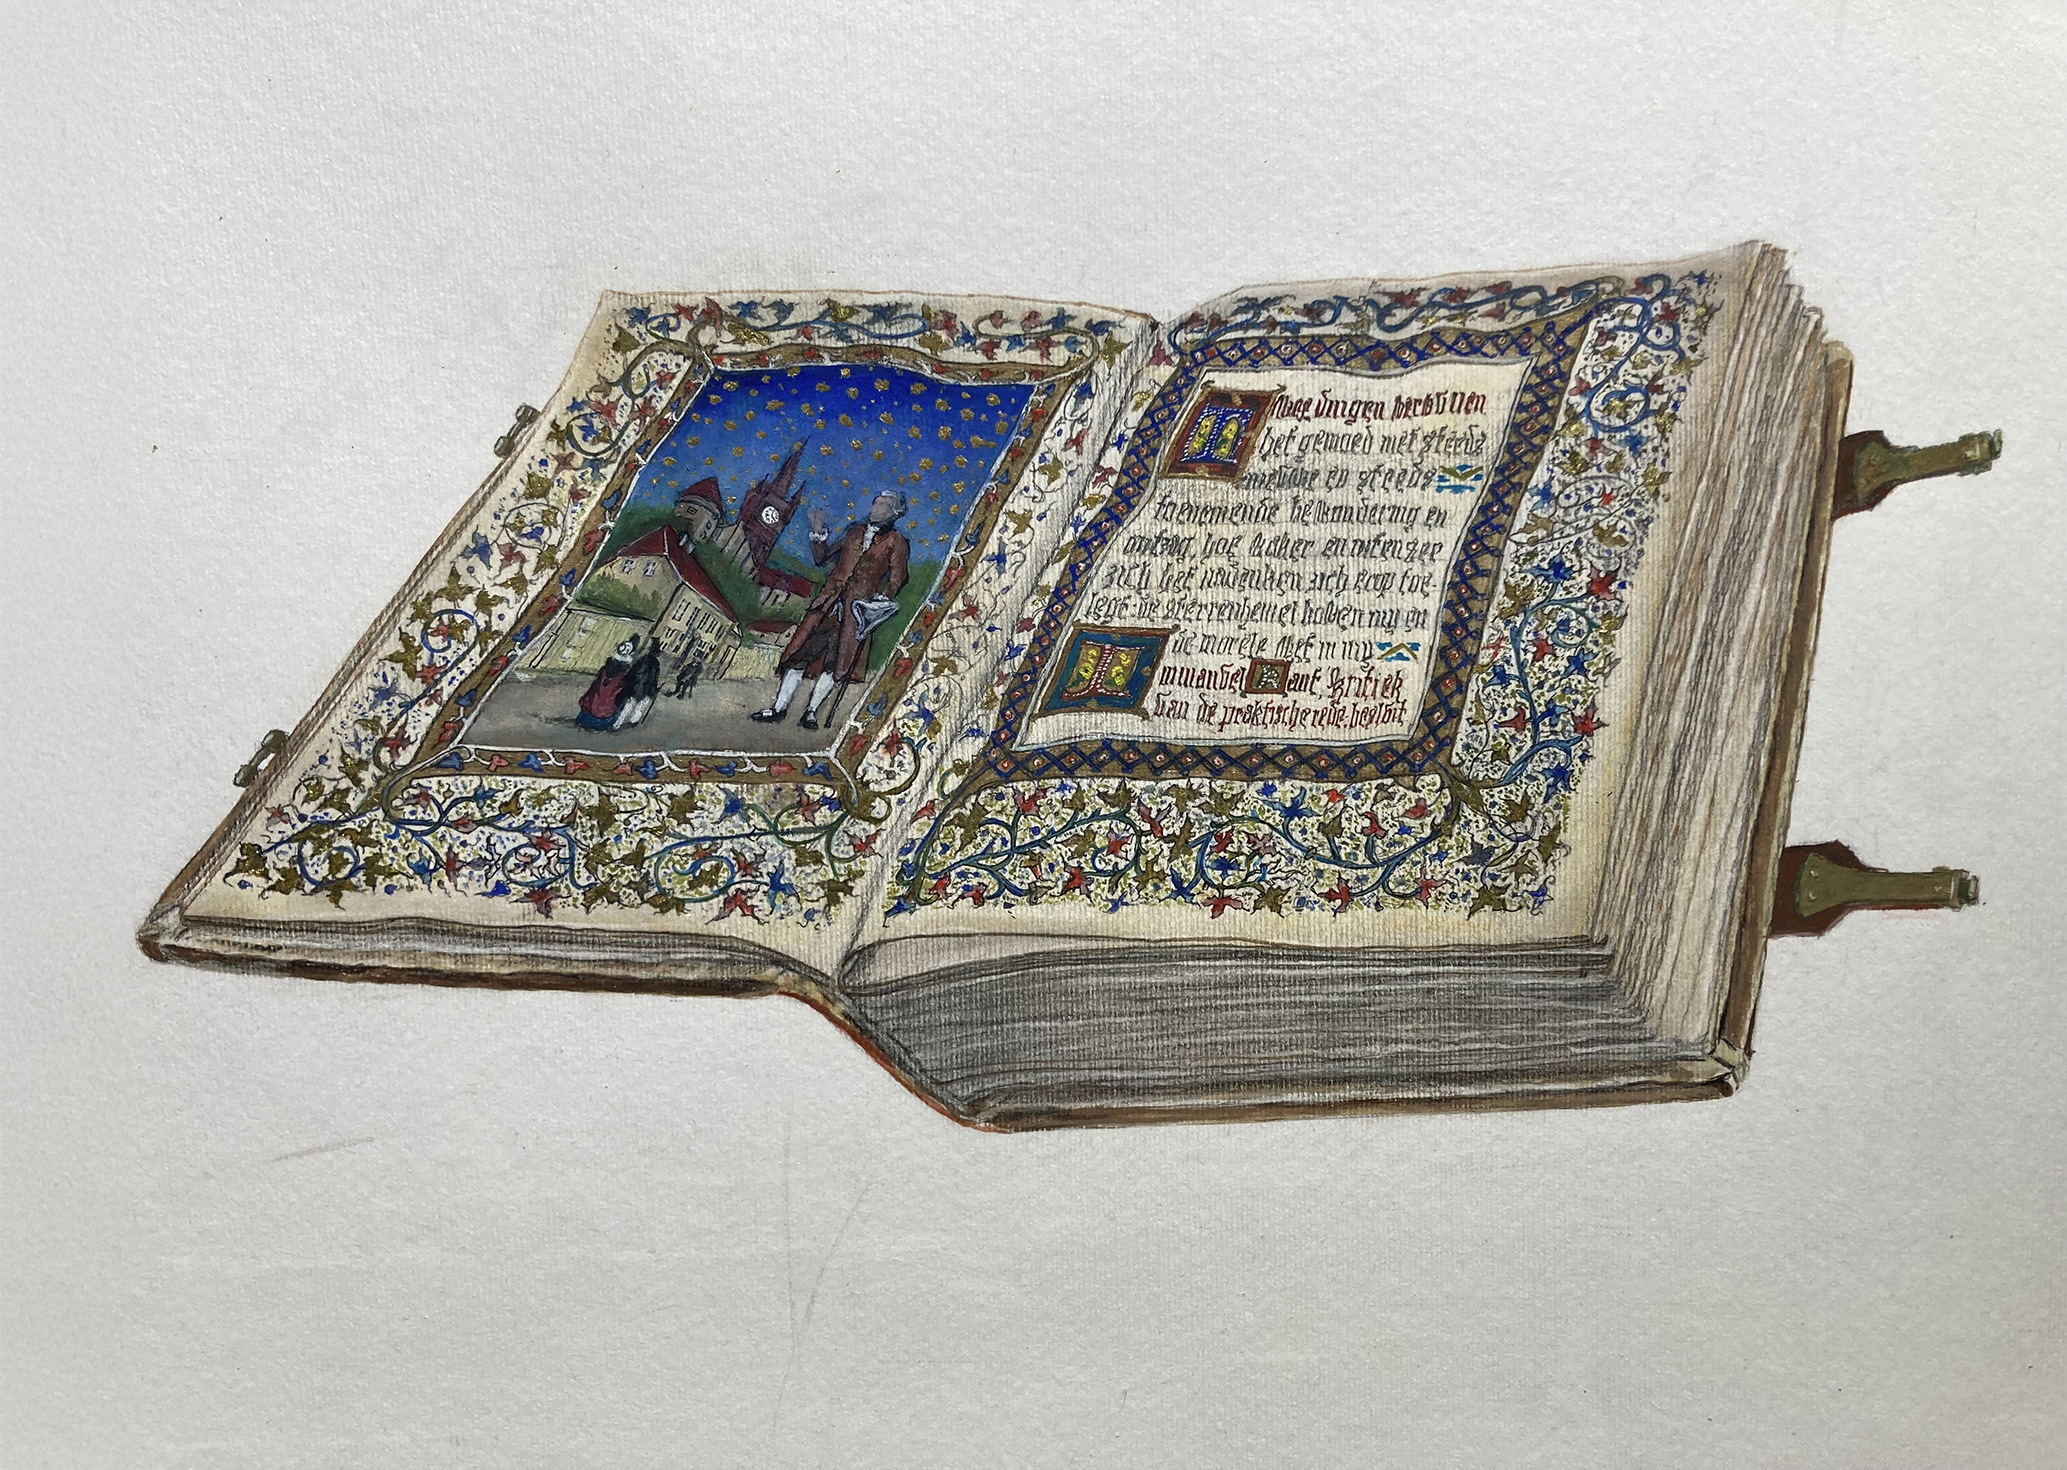 Twee dingen vervullen
het gemoed met steeds
nieuwe en steeds
toenemende bewondering en
ontzag, hoe vaker en intenser
zich het nadenken zich erop toe-
legt: de sterrenhemel boven mij en
de morele wet in mij
Immanuel Kant, Kritiek
van de praktische rede, besluit